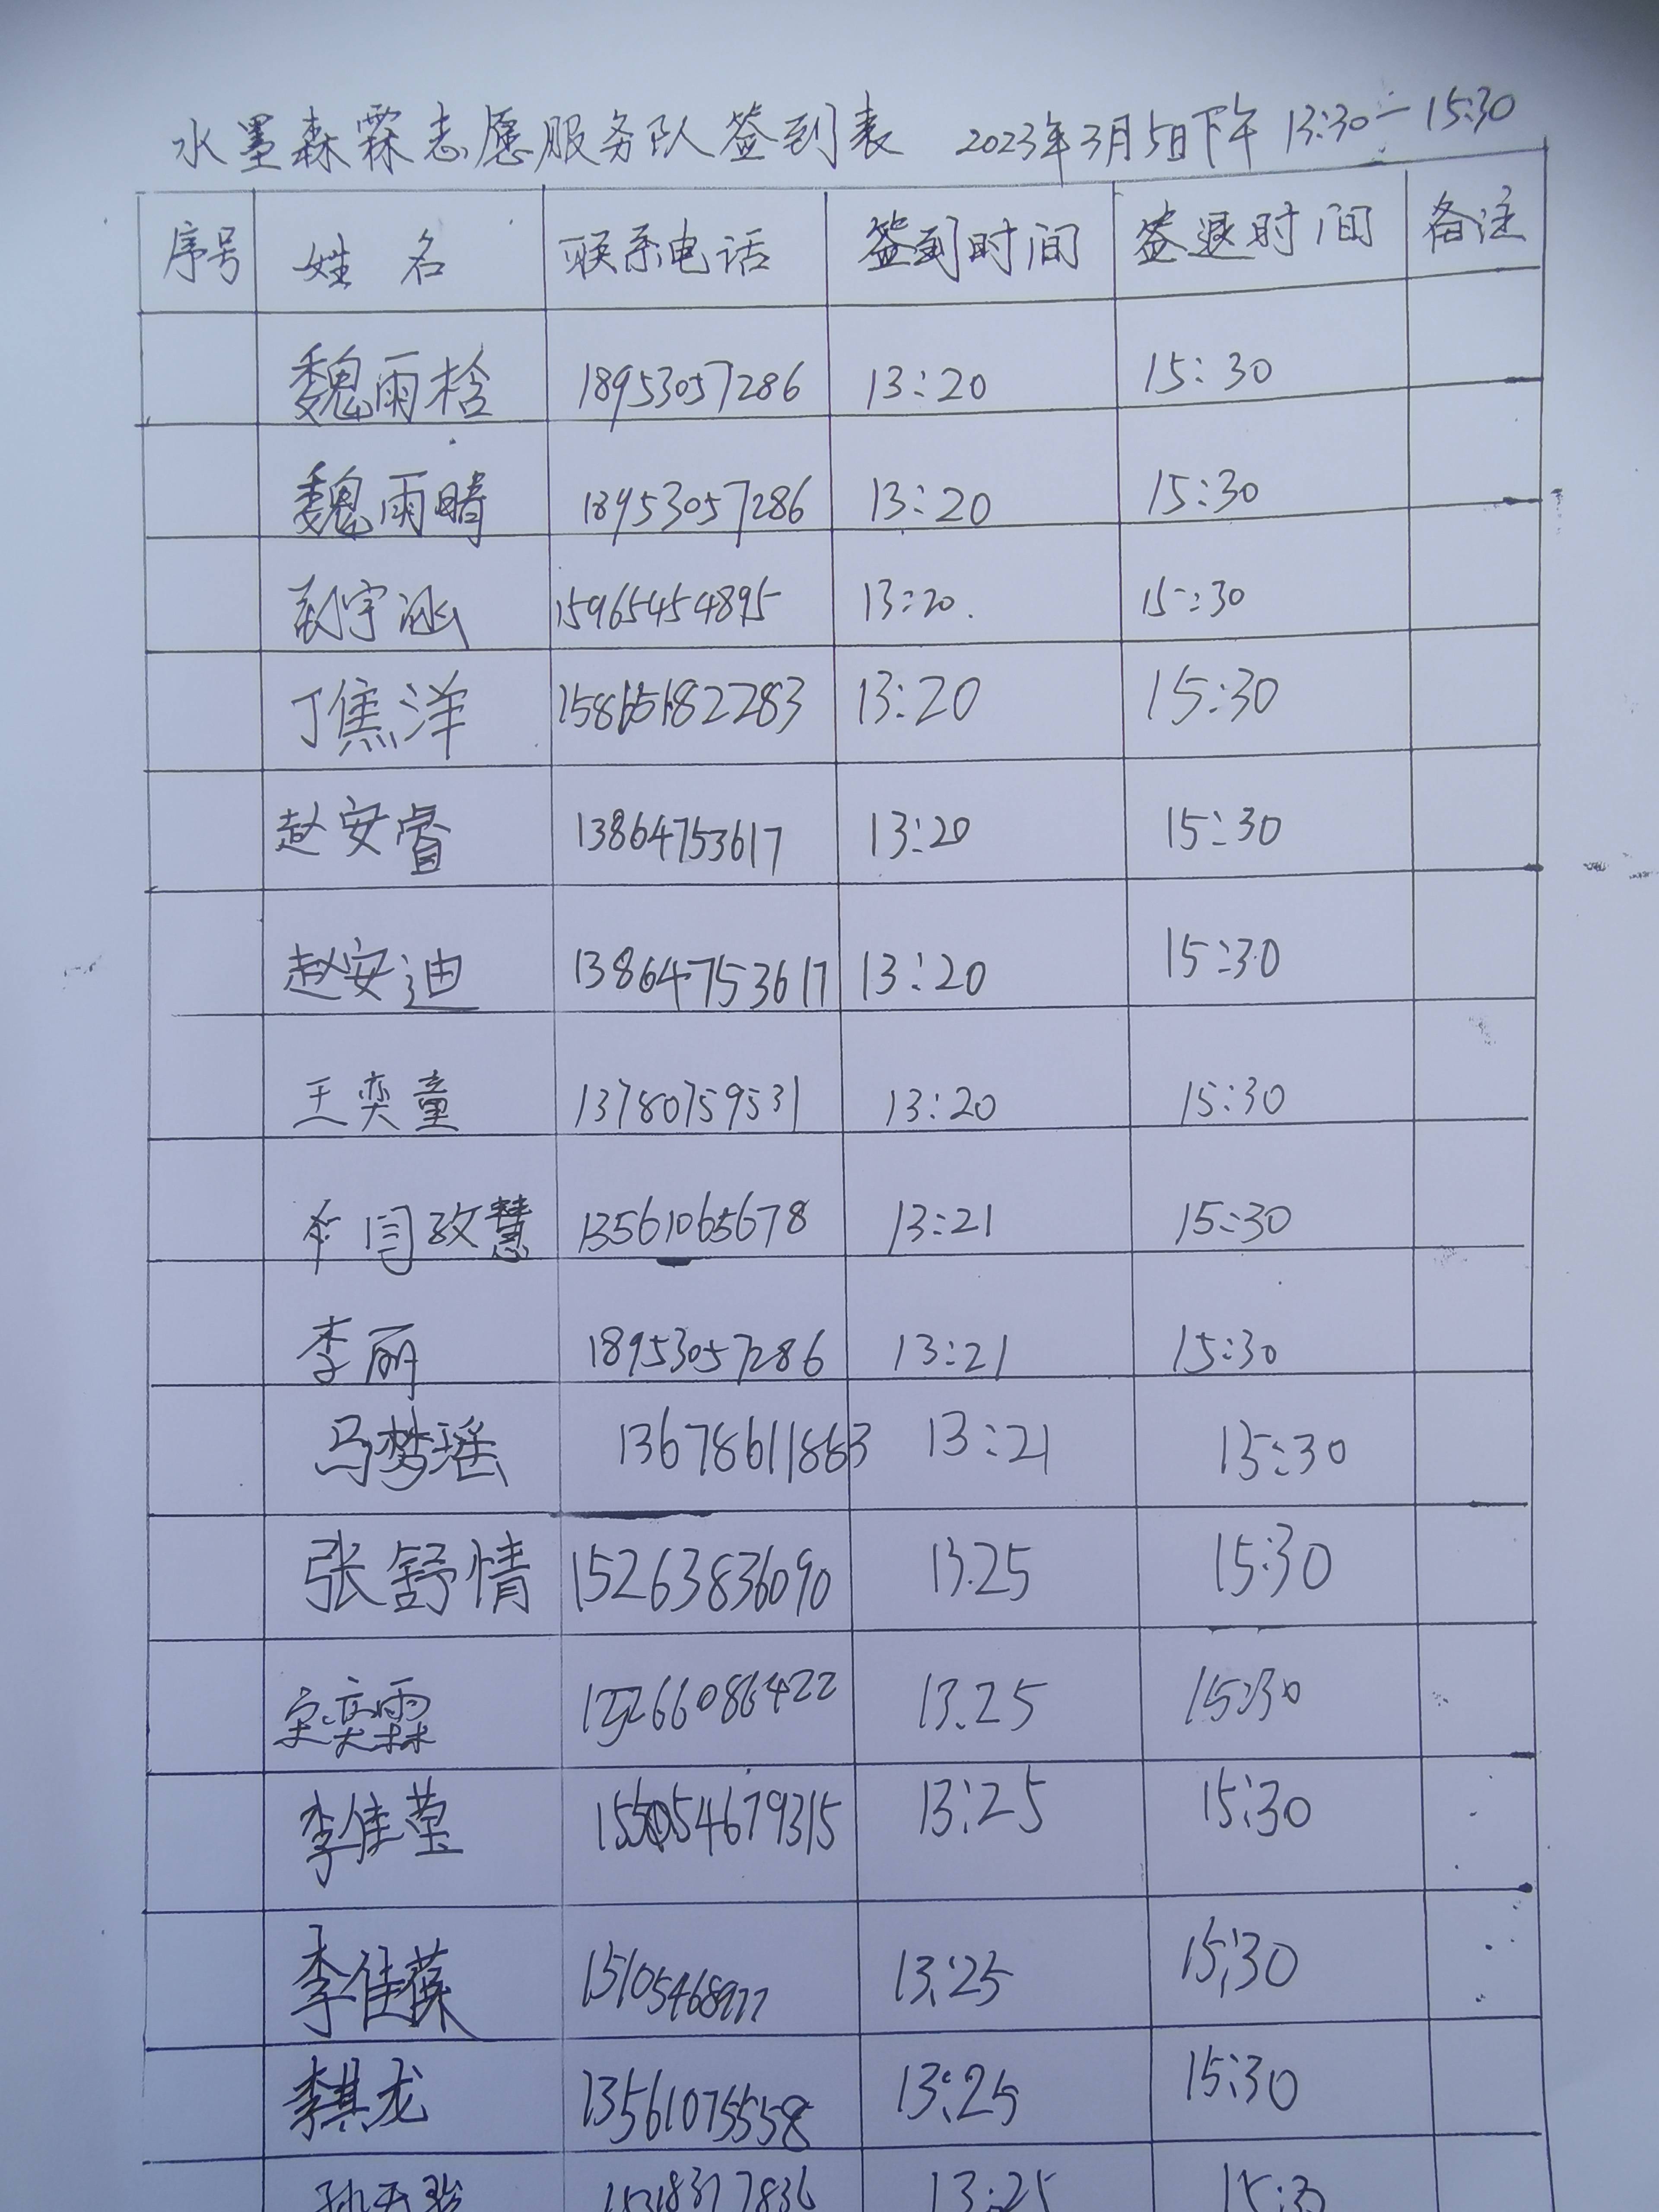 水墨森霖志愿服务队签到表 2023年3月5日下午 13:30-15:30
序号 姓名 联系电话 签到时间 签退时间 备注
魏雨桧 18953057286 13:20 15:30
魏雨晴 18953057286 13:20 15:30
宇涵 15965454895 13:20. 15:30
丁焦洋 13:20 15:30
赵安睿 13864753617 13:20 15:30
赵安迪 13864753617 13:20 15:30
王奕童 13780759531 13:20 15:30
闫孜慧 13561065678 13:21 15:30
李丽 18953057286 13:21 15:30
马梦瑶 13678611863 13:21 15:30
张舒情 15263836090 13:25 15:30
奕霖 13:25 15:30
李佳莹 13:25 15:30
李佳葆 13:25 15:30
李其龙 13561075558 13:25 15:30
13:25 15:30